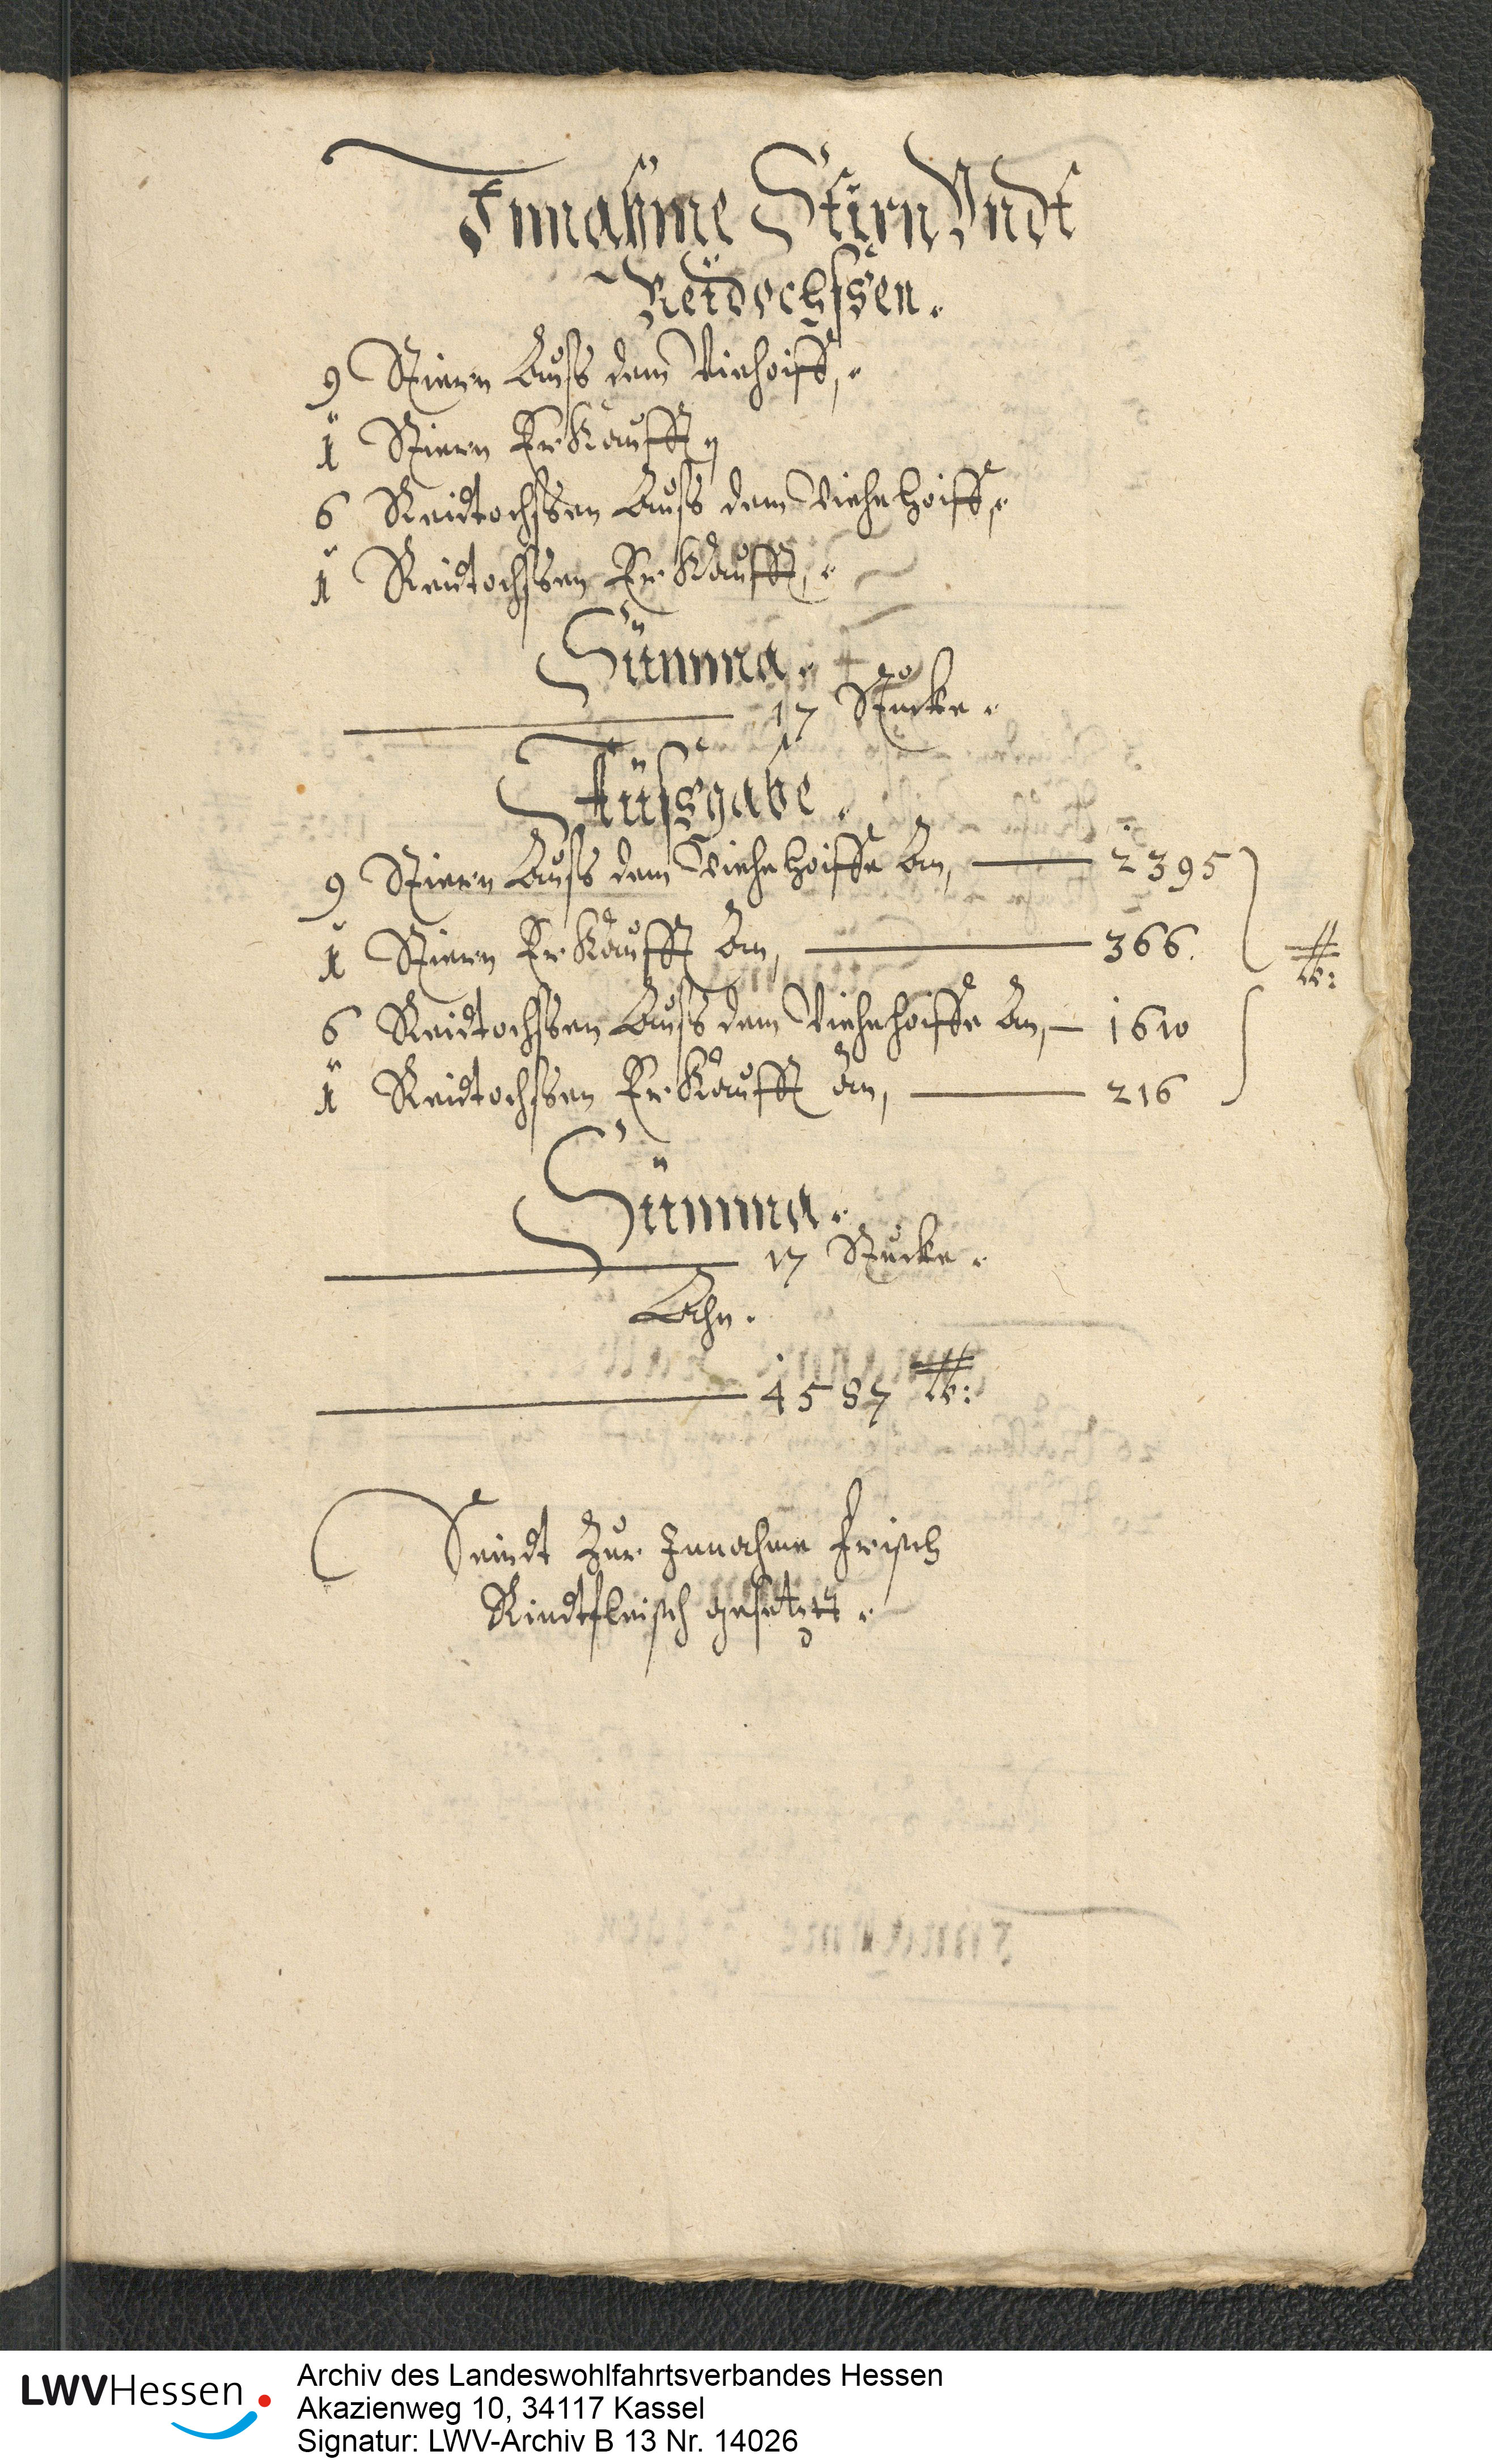 Innahme Stiern Vndt
Reidochssen.
9 Stiern Auß dem Viehoiff,
1 Stiern Erkaufft
6 Reidtochssen Auß dem Viehehoiff,
1 Reidtochssen Erkaufft,
Summa.
17 Stucke.
Außgabe.
9 Stiern Auß dem Viehehoiffe An, 2395
1 Stiern Erkaufft An, 366. lb:
6 Reidtochssen Auß dem Viehehoiffe An, 1610
1 Reidtochssen Erkaufft An, 216
Summa.
17 Stucke.
Ahn.
4587 lb:
Seindt Zur Innahme Frisch
Rindtfleisch gesetzet.
LWVHessen
Archiv des Landeswohlfahrtsverbandes Hessen
Akazienweg 10, 34117 Kassel
Signatur: LWV-Archiv B 13 Nr. 14026